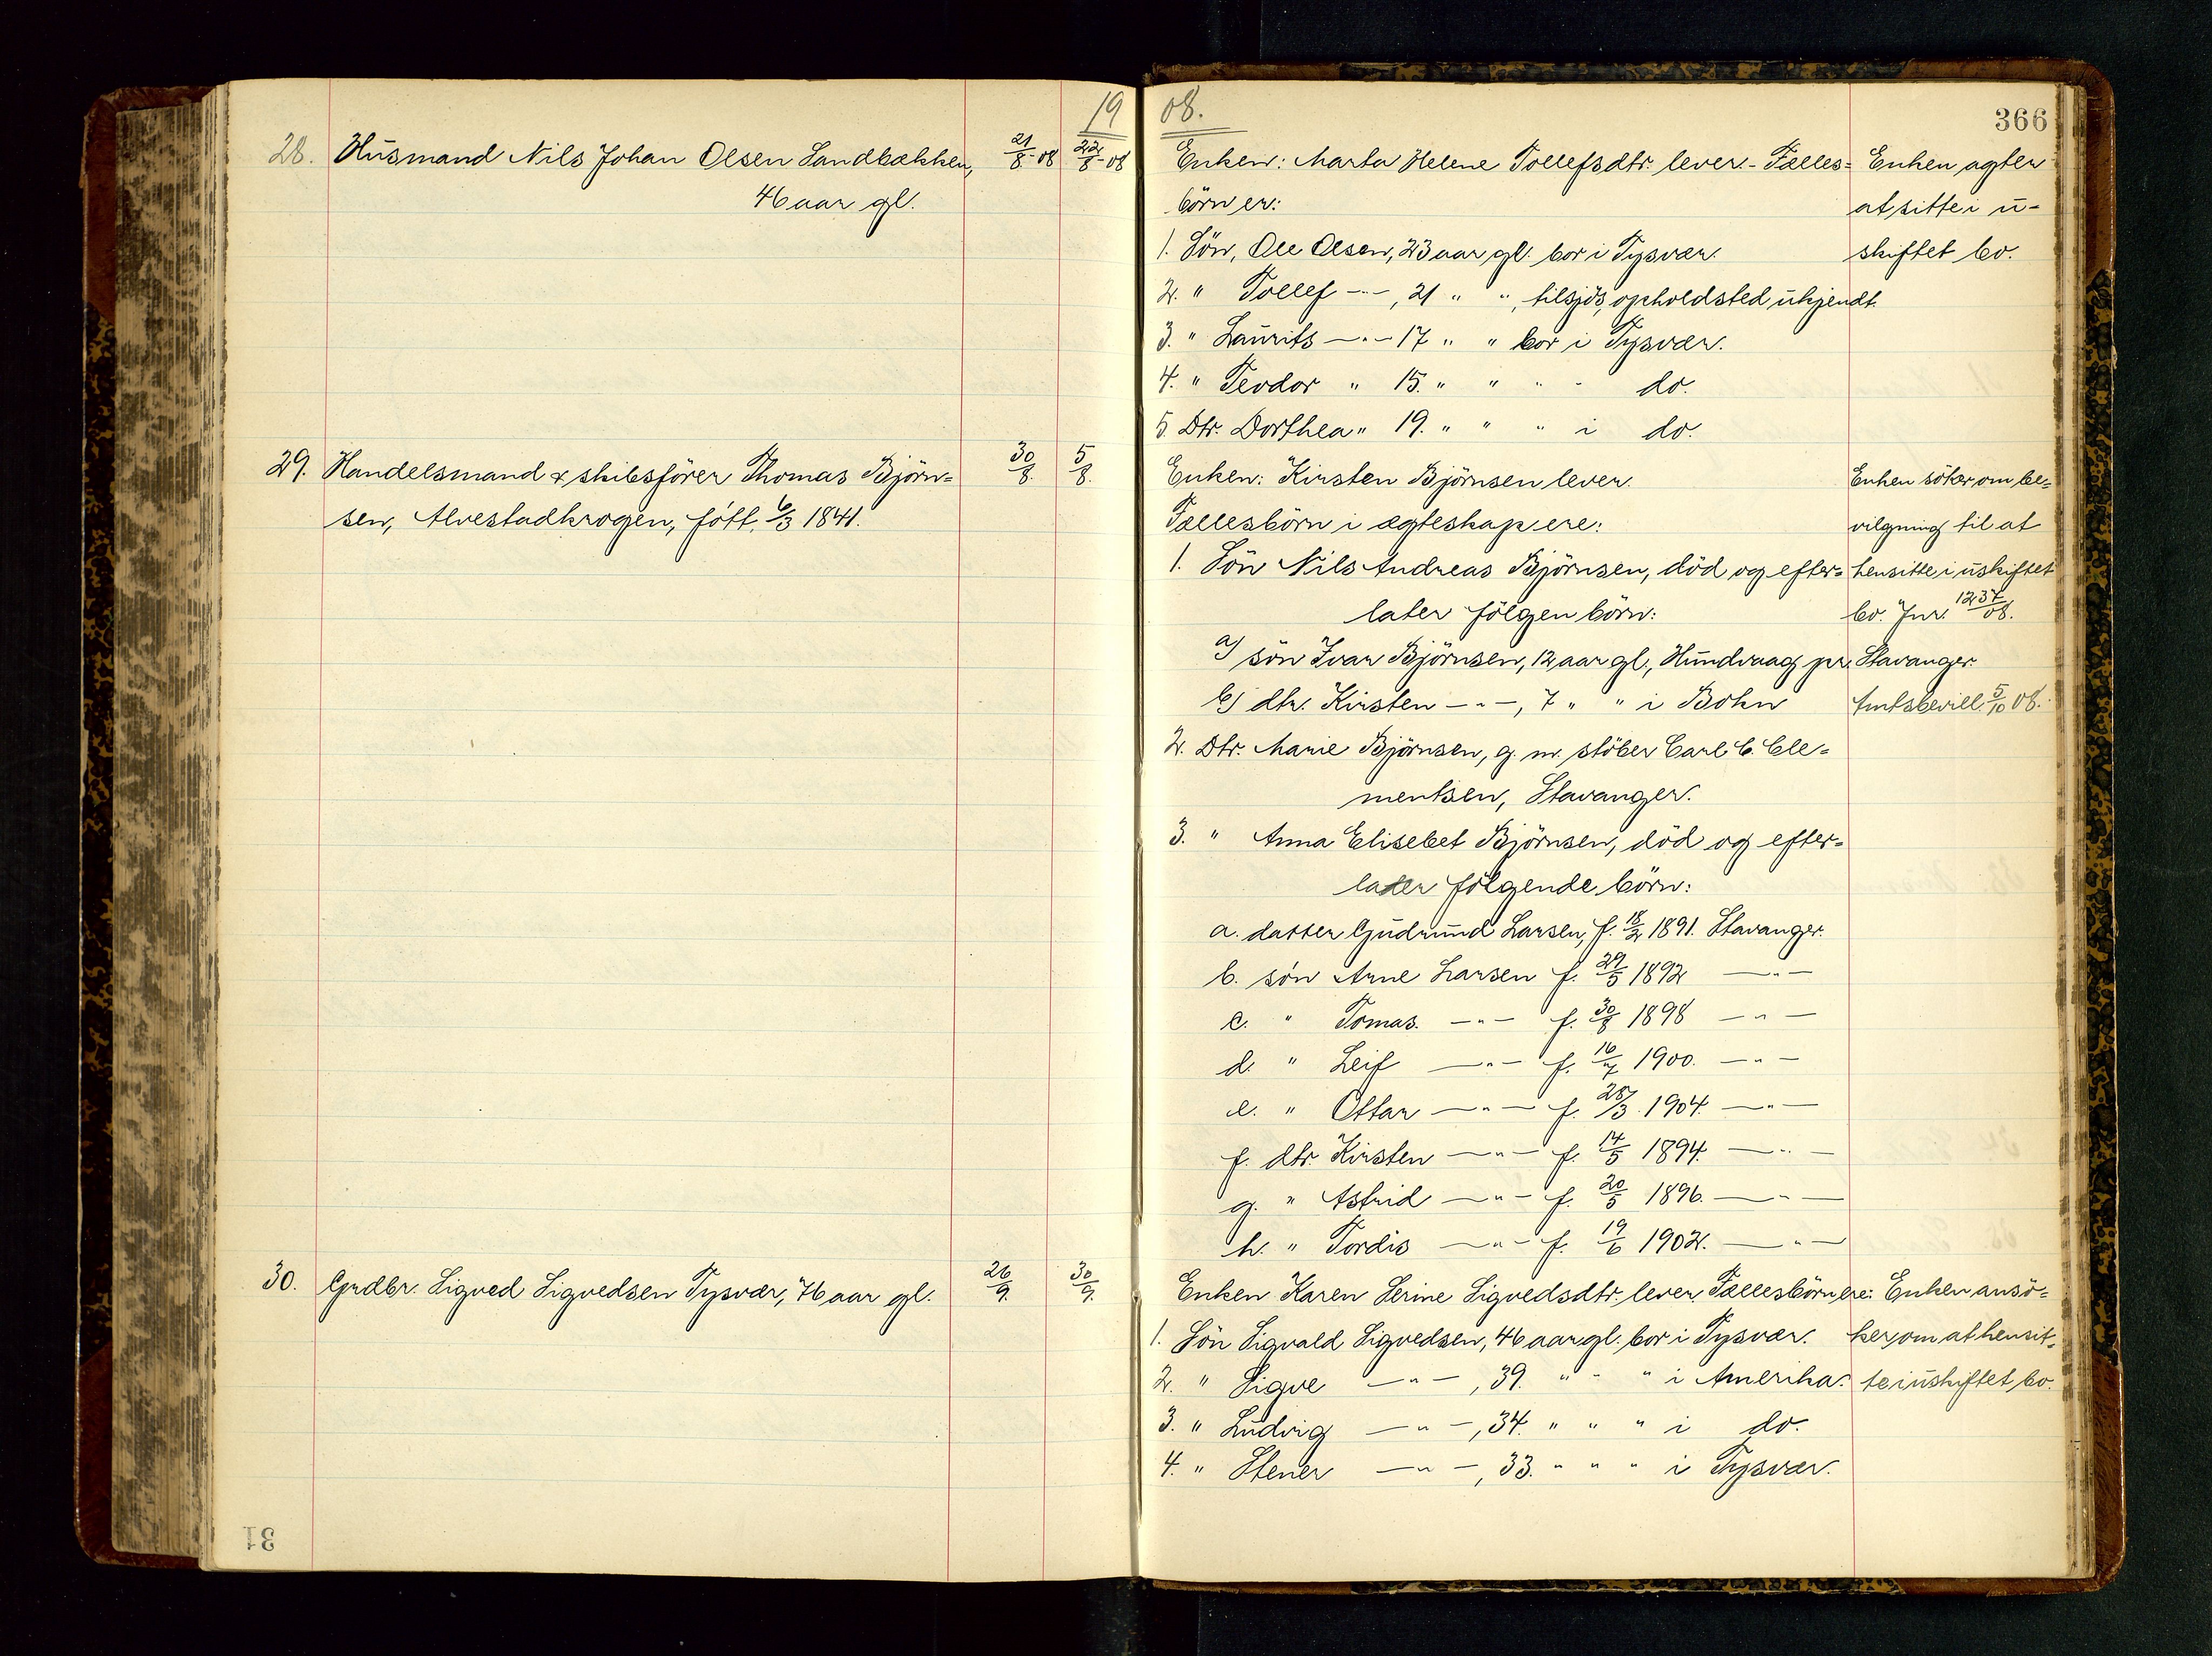 19
28. Husmand Nils Johan Olsen Sandbækken, 21/8-08 22/8-08
46 aar gl.
29. Handelsmand & skibsförer Thomas Björn= 30/8. 5/8.
sen, Alvestadkrogen, fött. 6/3 1841.
30. Grdbr. Sigved Sigvedsen Tysvær, 76 aar gl. 26/9. 30/9.
31
08.
366
Enken: Marta Helene Tollefsdtr. lever. - Fælles= Enken agter
börn er: at sitte i u-
1. Sön, Ole Olsen, 23 aar gl. bor i Tysvær. skiftet bo.
2. " Tollef -"-, 21 " ", tilsjös, opholdsted ukjendt.
3. " Laurits -"- 17 " " bor i Tysvær.
4. " Teodor " 15. " " " - do.
5. Dtr. Dorthea " 19. " " " i do.
Enken: Kirsten Björnsen lever. Enken söker om be=
Fællesbörn i ægteskap ere: vilgning til at
1. Sön Nils Andreas Björnsen, död og efter= hensitte i uskiftet
later fölgen börn: bo. Jnr. 1237/08.
a) sön Ivar Björnsen, 12 aar gl., Hundvaag pr. Stavanger
b) dtr. Kirsten -"-, 7 " " i Bokn Amtsbevill. 5/10 08.
2. Dtr. Marie Björnsen, g. m. stöber Carl C. Cle=
mentsen, Stavanger.
3. " Anna Elisebet Björnsen, död og efter=
later fölgende börn:
a. datter Gudrund Larsen, f. 18/2 1891. Stavanger.
b. sön Arne Larsen f. 29/5 1892 -"-
c. " Tomas. -"- f. 30/8 1898 -"-
d. " Leif -"- f. 16/7 1900. -"-
e. " Ottar -"- f. 28/3. 1904. -"-
f. dtr. Kirsten -"- f. 14/5 1894. -"-
g. " Astrid -"- f. 20/5 1896. -"-
h. " Tordis -"- f. 19/6 1902. -"-
Enken Karen Serine Sigvedsdtr. lever. Fællesbörn ere: Enken ansö=
1. Sön Sigvald Sigvedsen, 46 aar gl. bor i Tysvær. ker om at hensit=
2. " Sigve -"-, 39. " " " i Amerika. te i uskiftet bo.
3. " Ludvig -"-, 34. " " " i do.
4. " Stener -"-, 33. " " " i Tysvær.